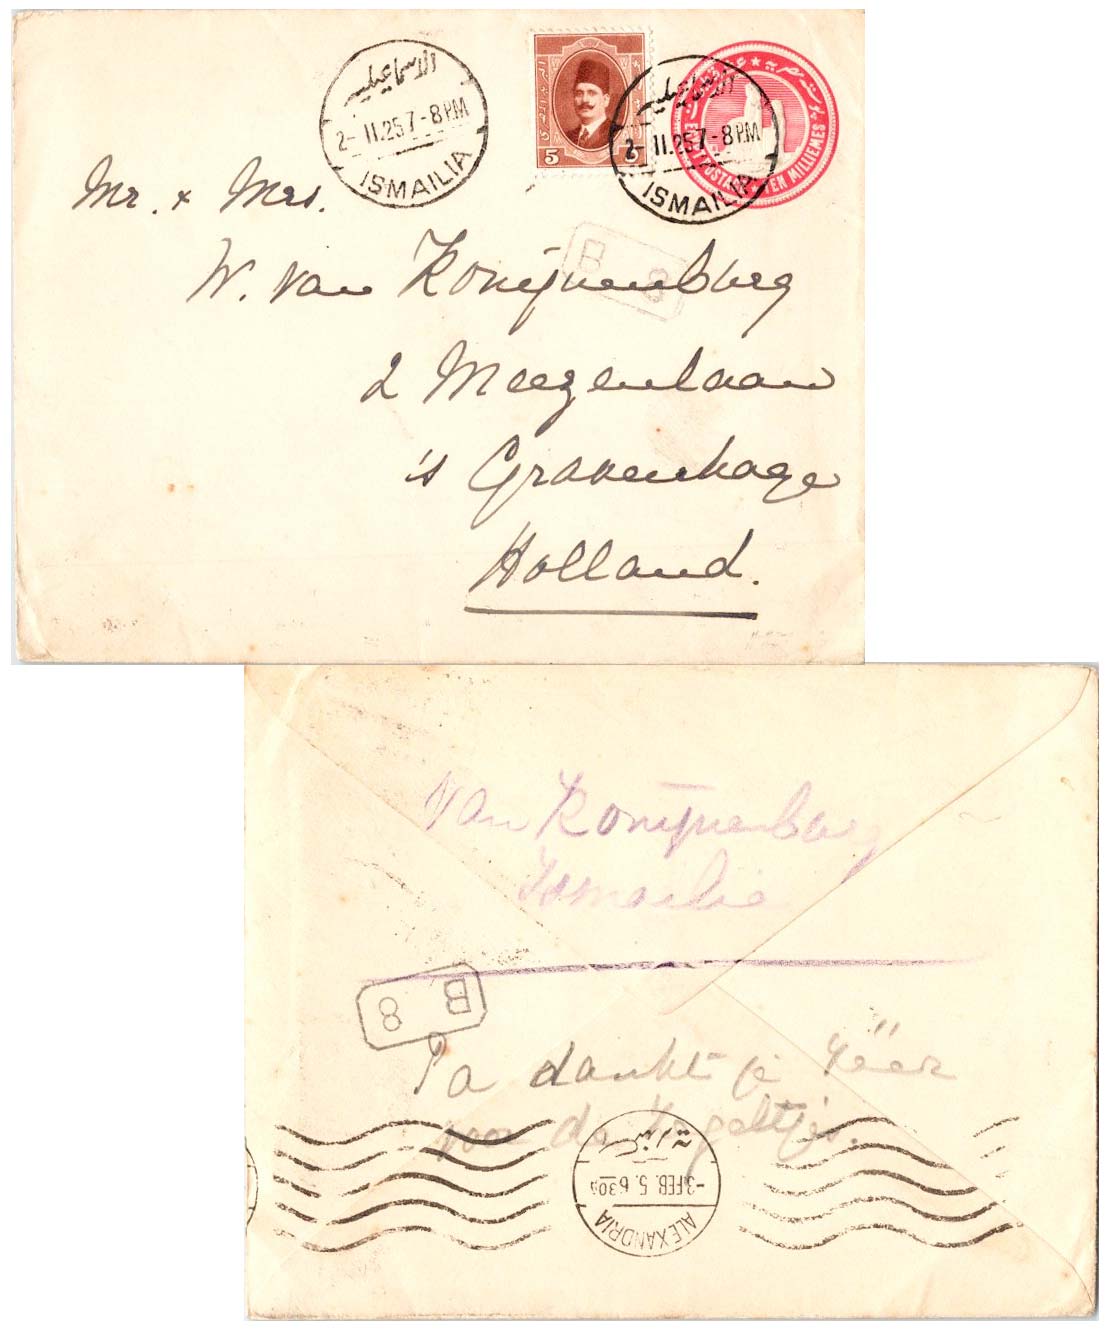 الاسماعيلية
2- II.25 7-8 PM
ISMAILIA
5
الاسماعيلية
2- II.25 7-8 PM
ISMAILIA
EGYPT POSTAGE ★ TEN MILLIEMES
Mr. & Mrs.
B 8
W. van Konijnenburg
2 Meezenlaan
's Gravenhage
Holland.
van Konijnenburg
Ismailia
B 8
Pa dankt je zéér
voor de zegeltjes.
-3 FEB. 5. 630P
ALEXANDRIA